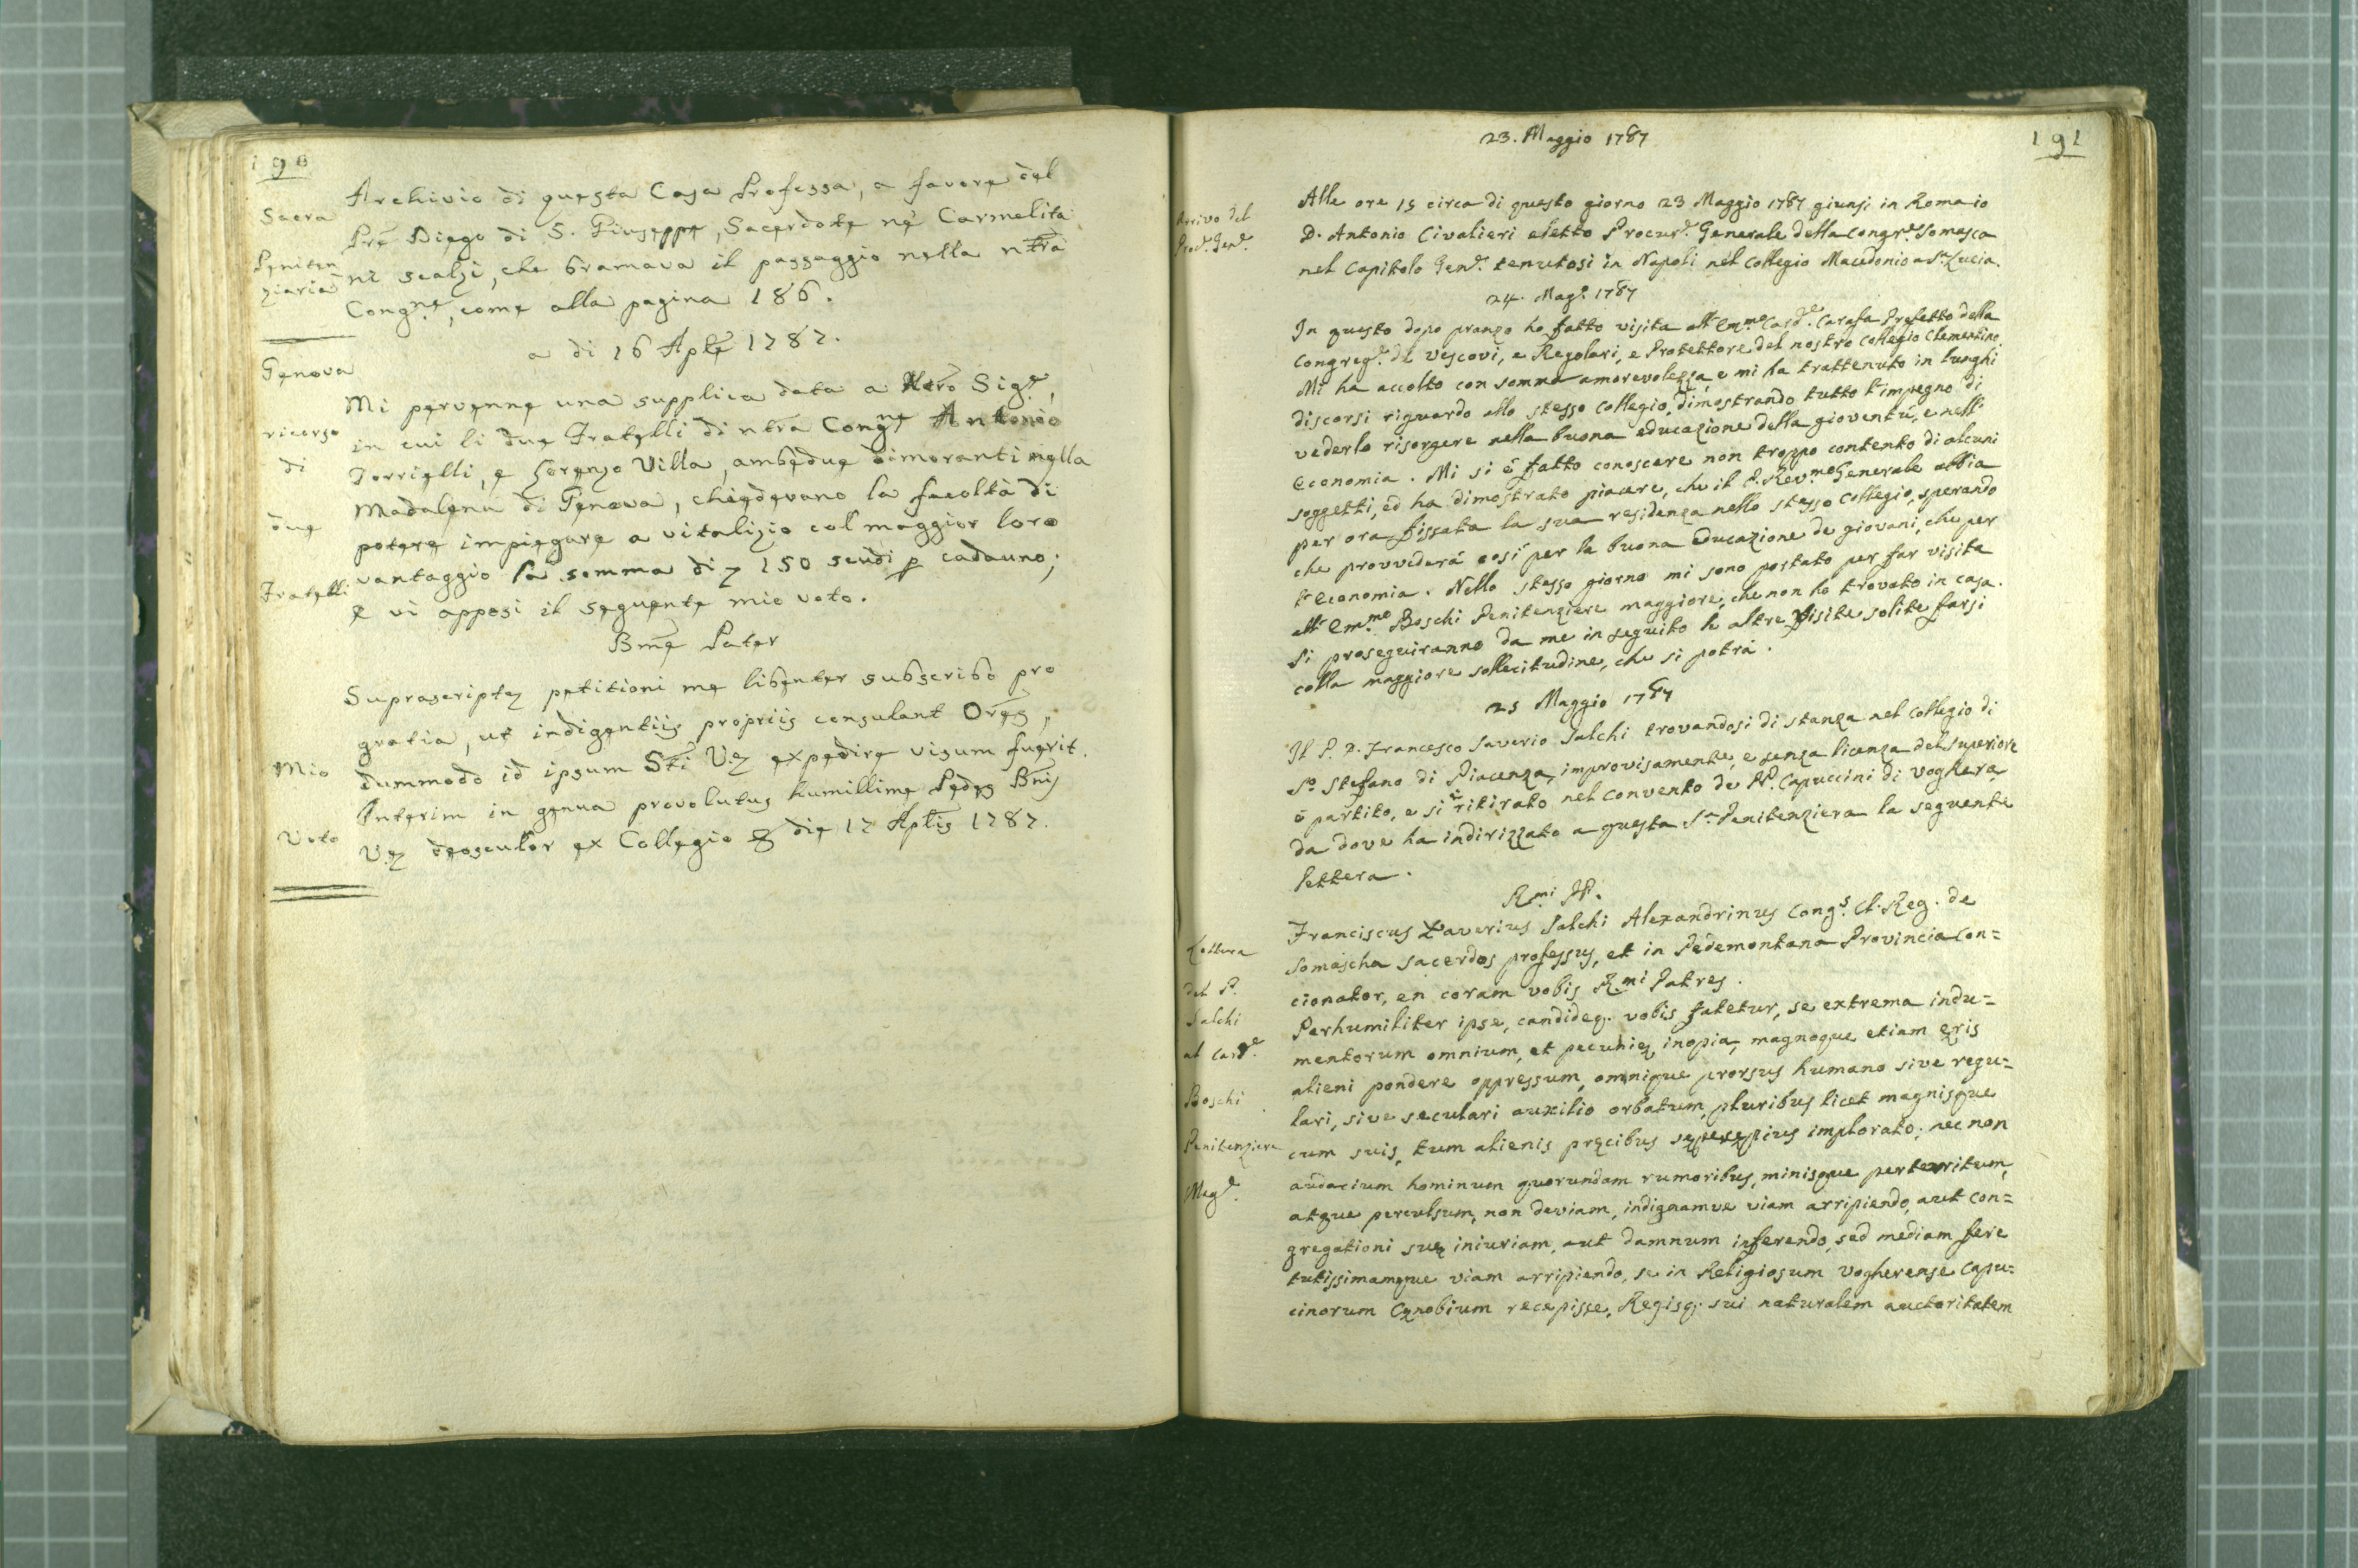 190
Sacra
Peniten
ziaria
Archivio di questa Casa Professa, a favore del
Prẽ Diego di S. Giuseppe, Sacerdote ne' Carmelita
ni scalzi, che bramava il passaggio nella ntrã
Congne, come alla pagina 186.
a di 16 Aplẽ 1787.
Genova
ricorso
di
due
Fratelli
Mi pervenne una supplica data a Ntrõ Sigre,
in cui li due Fratelli di ntrã Congne Antonio
Torrielli, e Lorenzo Villa, ambedue dimoranti nella
Madalena di Genova, chiedevano la facoltà di
potere impiegare a vitalizio col maggior loro
vantaggio la somma di 150 scudi p cadauno;
e vi apposi il seguente mio voto.
Bmẽ Pater
Mio
Voto
Suprascriptę petitioni me libenter subscribo pro
gratia, ut indigentiis propriis consulant Orẽs,
dummodo id ipsum Stĩ Vę expedire visum fuerit.
Interim in genua provolutus humillime Pedes Bnĩs
Vę deosculor ex Collegio & die 17 Aplĩs 1787.
191
23. Maggio 1787
Arrivo del
Procr. Gene.
Alle ore 15 circa di questo giorno 23 Maggio 1787 giunsi in Roma io
D. Antonio Civalieri eletto Procure. Generale della Congre. Somasca
nel Capitolo Gene. tenutosi in Napoli nel Collegio Macedonio a Sa. Lucia.
24. Mago. 1787
In questo dopo pranzo ho fatto visita all'Emmo. Carde. Carafa Prefetto della
Congrege. de Vescovi, e Regolari, e Protettore del nostro Collegio Clementino.
Mi ha accolto con somma amorevolezza, e mi ha trattenuto in lunghi
discorsi riguardo allo stesso Collegio, dimostrando tutto l'impegno di
vederlo risorgere nella buona educazione della gioventù, e nell'
economia. Mi si è fatto conoscere non troppo contento di alcuni
soggetti, ed ha dimostrato piacere, che il P. Revmo. Generale abbia
per ora fissata la sua residenza nello stesso Collegio, sperando
che provviderà così per la buona educazione de giovani, che per
l'economia. Nello stesso giorno mi sono portato per far visita
all'Emmo. Boschi Penitenziere maggiore, che non ho trovato in casa.
Si proseguiranno da me in seguito le altre Visite solite farsi
colla maggiore sollecitudine, che si potrà.
25 Maggio 1787
Il P. D. Francesco Saverio Salchi trovandosi di stanza nel Collegio di
So. Stefano di Piacenza, improvisamente, e senza licenza del Superiore
è partito, e si è ritirato nel convento de PP. Capuccini di Voghera,
da dove ha indirizzato a questa Sa. Penitenziera la seguente
lettera.
Rmi PP.
Lettera
del P.
Salchi
al Carde.
Boschi
Penitenziere
Mage.
Franciscus Xaverius Salchi Alexandrinus Congs. Cl. Reg. de
Somascha Sacerdos professus, et in Pedemontana Provincia Con=
cionator, en coram vobis Rmi Patres.
Perhumiliter ipse, candideq. vobis fatetur, se extrema indu=
mentorum omnium, et pecunię inopia, magnoque etiam ęris
alieni pondere oppressum, omnique prorsus humano sive regu=
lari, sive seculari auxilio orbatum, pluribus licet magnisque
cum suis, tum alienis pręcibus sępesępius implorato; nec non
audacium hominum quorundam rumoribus, minisque perterritum,
atque perculsum, non deviam, indignamve viam arripiendo, aut Con=
gregationi suę iniuriam, aut damnum inferendo, sed mediam fere
tutissimamque viam arripiendo, se in Religiosum Vogherense Capu=
cinorum Cęnobium recepisse, Regisq. sui naturalem auctoritatem